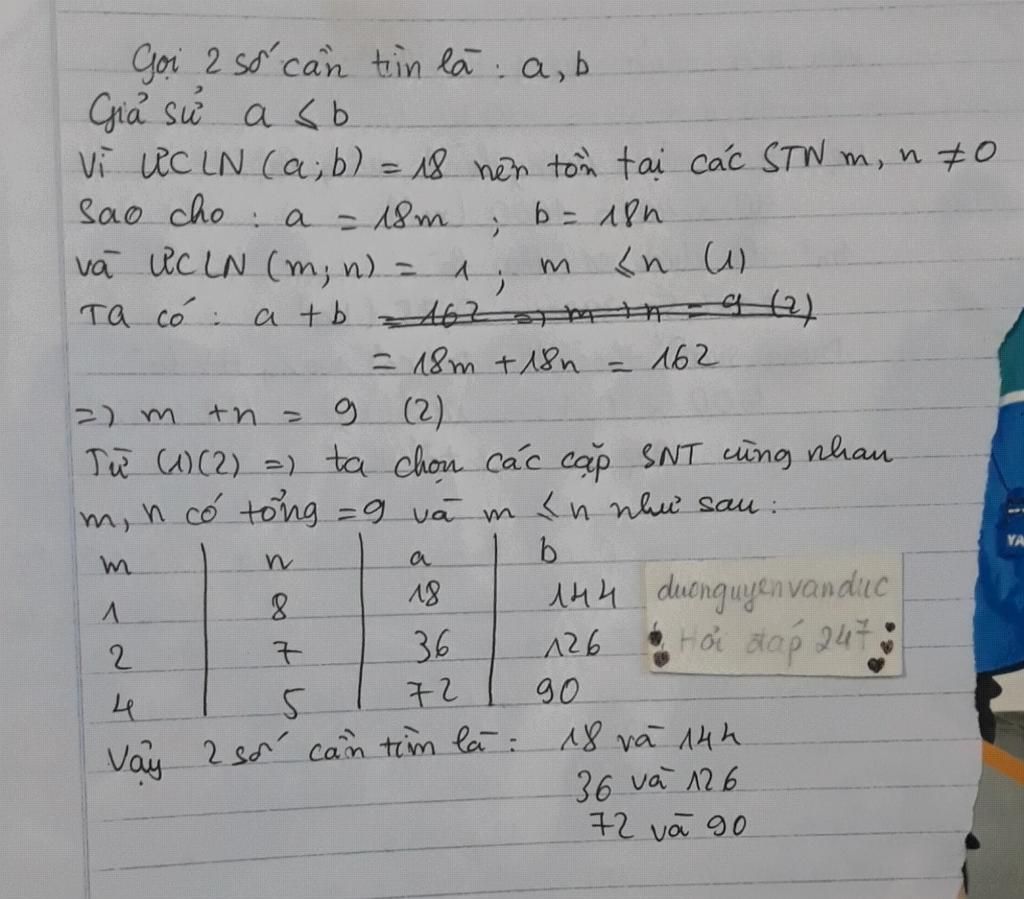 Gọi 2 số cần tìm là : a, b
Giả sử a ≤ b
Vì ƯCLN (a; b) = 18 nên tồn tại các STN m, n ≠ 0
Sao cho : a = 18m ; b = 18n
và ƯCLN (m; n) = 1 ; m ≤ n (1)
Ta có : a + b = 162 => m + n = 9 (2)
= 18m + 18n = 162
=> m + n = 9 (2)
Từ (1)(2) => ta chọn các cặp SNT cùng nhau
m, n có tổng = 9 và m ≤ n như sau :
m n a b
1 8 18 144
2 7 36 126
4 5 72 90
duonguyenvanduc
Hỏi đáp 247
Vậy 2 số cần tìm là : 18 và 144
36 và 126
72 và 90
YA